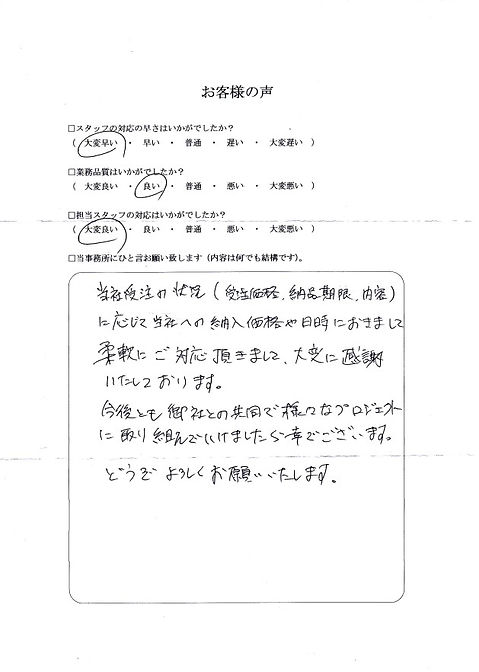 お客様の声
□スタッフの対応の早さはいかがでしたか？
（ 大変早い ・ 早い ・ 普通 ・ 遅い ・ 大変遅い ）
□業務品質はいかがでしたか？
（ 大変良い ・ 良い ・ 普通 ・ 悪い ・ 大変悪い ）
□担当スタッフの対応はいかがでしたか？
（ 大変良い ・ 良い ・ 普通 ・ 悪い ・ 大変悪い ）
□当事務所にひと言お願い致します（内容は何でも結構です）。
当社受注の状況（受注価格、納品期限、内容）
に応じて当社への納入価格や日時におきまして
柔軟にご対応頂きまして、大変に感謝
いたしております。
今後とも御社との共同で様々なプロジェクト
に取り組んでいけましたら幸でございます。
どうぞよろしくお願いいたします。